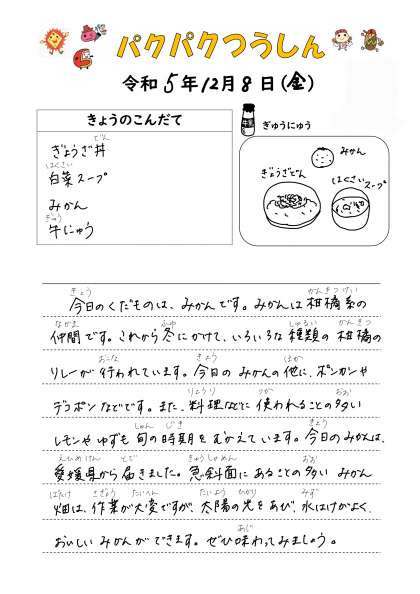 パクパクつうしん
令和5年12月8日(金)
きょうのこんだて
ぎょうざ丼
どん
白菜スープ
はくさい
みかん
牛にゅう
ぎゅう
ぎゅうにゅう
みかん
ぎょうざどん
はくさいスープ
きょう かんきつけい
今日のくだものは、みかんです。みかんは柑橘系の
なかま ふゆ しゅるい かんきつ
仲間です。これから冬にかけて、いろいろな種類の柑橘の
おこな きょう ほか
リレーが行われています。今日のみかんの他に、ポンカンや
りょうり つか おお
デコポンなどです。また、料理などに使われることの多い
しゅん じき きょう
レモンやゆずも旬の時期をむかえています。今日のみかんは、
えひめけん とど きゅうしゃめん おお
愛媛県から届きました。急斜面にあることの多いみかん
はたけ さぎょう たいへん たいよう ひかり みず
畑は、作業が大変ですが、太陽の光をあび、水はけがよく、
あじ
おいしいみかんができます。ぜひ味わってみましょう。